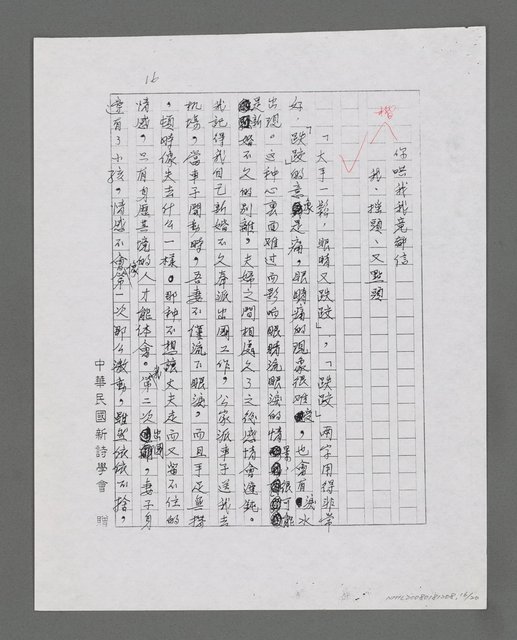 16
你哄我我竟都信
我、搖頭、又點頭
「大手一鬆,眼睛又跌跤」,「跌跤」兩字用得非常
好,「跌跤的意象是痛,眼睛痛的現象很难受,也會有淚水
出現。这种心裏面难过而影响眼睛流眼淚的情景,很可能
是新婚不久的別離,夫婦之間相處久了之後感情會遲鈍。
我記得我自己新婚不久奉派出國工作,公家派車子送我去
机場,當車子開動時,吾妻不僅流下眼淚,而且手足無措
,頓時像失去什么一樣。那种不想讓丈夫走而又留不住的
情感,只有身歷其境的人才能体會。我第二次出國,妻子身
邊有了小孩,情感不會像第一次那么激動,雖然依依不捨,
中華民國新詩學會 贈
NMTL20080181208, 16/20